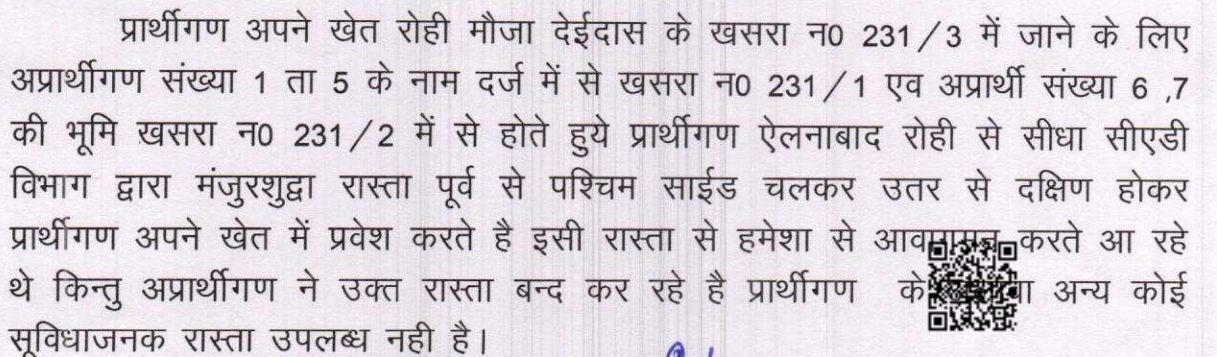 प्रार्थीगण अपने खेत रोही मौजा देईदास के खसरा न0 231/3 में जाने के लिए
अप्रार्थीगण संख्या 1 ता 5 के नाम दर्ज में से खसरा न0 231/1 एव अप्रार्थी संख्या 6 ,7
की भूमि खसरा न0 231/2 में से होते हुये प्रार्थीगण ऐलनाबाद रोही से सीधा सीएडी
विभाग द्वारा मंजुरशुद्वा रास्ता पूर्व से पश्चिम साईड चलकर उतर से दक्षिण होकर
प्रार्थीगण अपने खेत में प्रवेश करते है इसी रास्ता से हमेशा से आवागमन करते आ रहे
थे किन्तु अप्रार्थीगण ने उक्त रास्ता बन्द कर रहे है प्रार्थीगण के अन्य कोई
सूविधाजनक रास्ता उपलब्ध नही है।